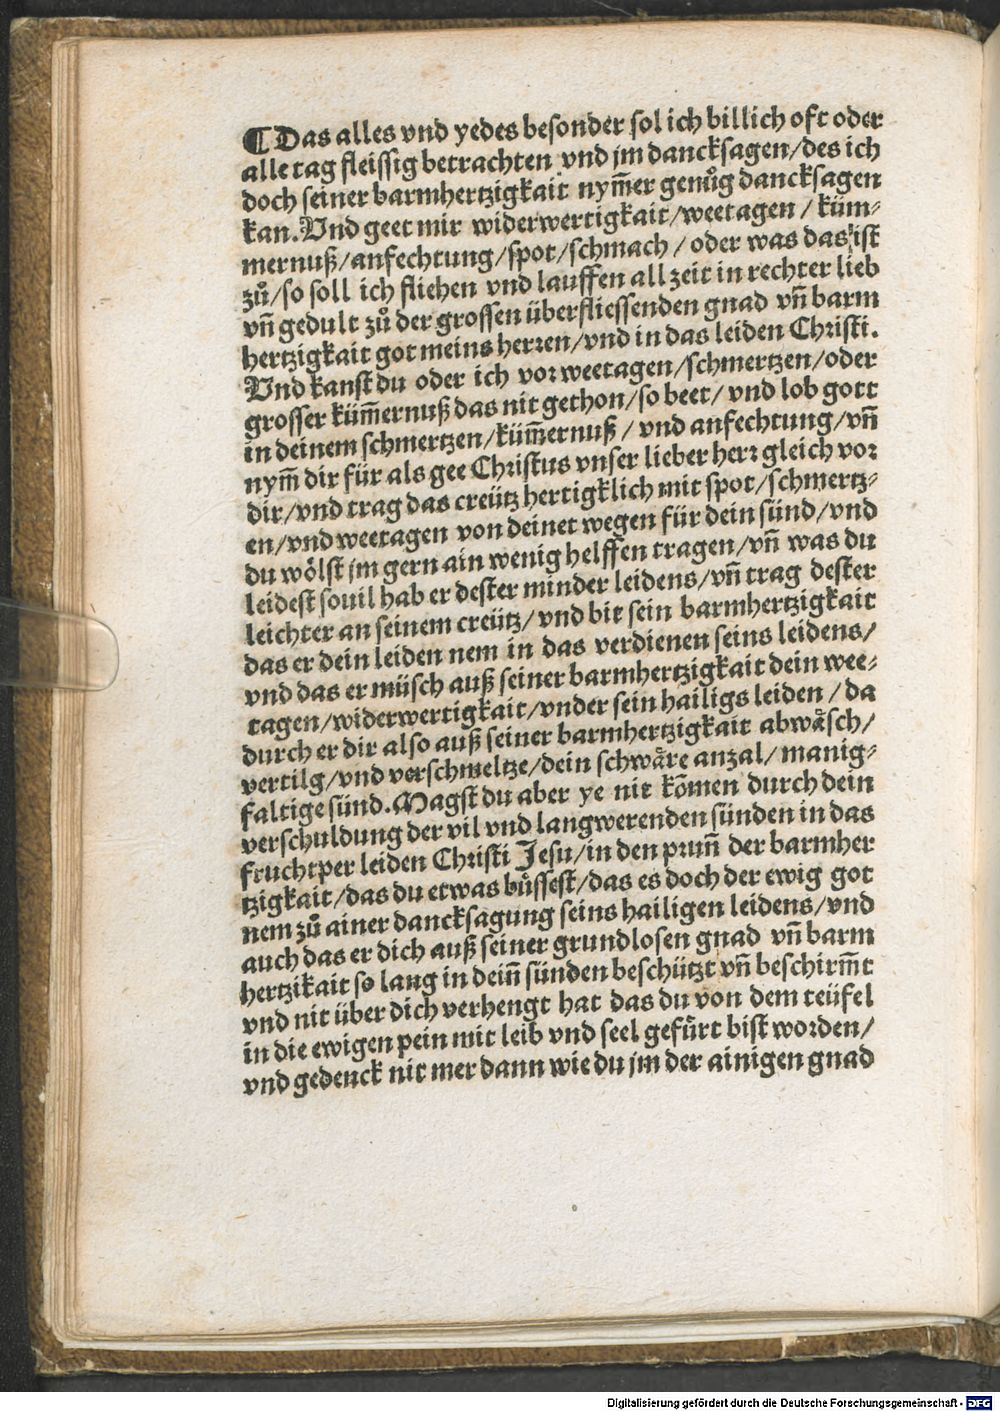 ¶ Das alles vnd yedes besonder sol ich billich oft oder
alle tag fleissig betrachten vnd jm dancksagen/des ich
doch seiner barmhertzigkait nym̄er genůg dancksagen
kan. Vnd geet mir widerwertigkait/weetagen/küm-
mernuß/anfechtung/spot/schmach/oder was das ist
zů/so soll ich fliehen vnd lauffen all zeit in rechter lieb
vn̄ gedult zů der grossen überfliessenden gnad vn̄ barm
hertzigkait got meins herren/vnd in das leiden Christi.
Vnd kanst du oder ich vor weetagen/schmertzen/oder
grosser küm̄ernuß das nit gethon/so beet/vnd lob gott
in deinem schmertzen/küm̄ernuß/vnd anfechtung/vn̄
nym̄ dir für als gee Christus vnser lieber herr gleich vor
dir/vnd trag das creütz hertigklich mit spot/schmertz-
en/vnd weetagen von deinet wegen für dein sünd/vnd
du wölst jm gern ain wenig helffen tragen/vn̄ was du
leidest souil hab er dester minder leidens/vn̄ trag dester
leichter an seinem creütz/vnd bit sein barmhertzigkait
das er dein leiden nem in das verdienen seins leidens/
vnd das er müsch auß seiner barmhertzigkait dein wee-
tagen/widerwertigkait/vnder sein hailigs leiden/da
durch er dir also auß seiner barmhertzigkait abwäsch/
vertilg/vnd verschmeltze/dein schwäre anzal/manig-
faltige sünd. Magst du aber ye nit kōmen durch dein
verschuldung der vil vnd langwerenden sünden in das
fruchtper leiden Christi Jesu/in den prun̄ der barmher
tzigkait/das du etwas bůssest/das es doch der ewig got
nem zů ainer dancksagung seins hailigen leidens/vnd
auch das er dich auß seiner grundlosen gnad vn̄ barm
hertzikait so lang in dein̄ sünden beschützt vn̄ beschirm̄t
vnd nit über dich verhengt hat das du von dem teüfel
in die ewigen pein mit leib vnd seel gefürt bist worden/
vnd gedenck nit mer dann wie du jm der ainigen gnad
Digitalisierung gefördert durch die Deutsche Forschungsgemeinschaft - DFG